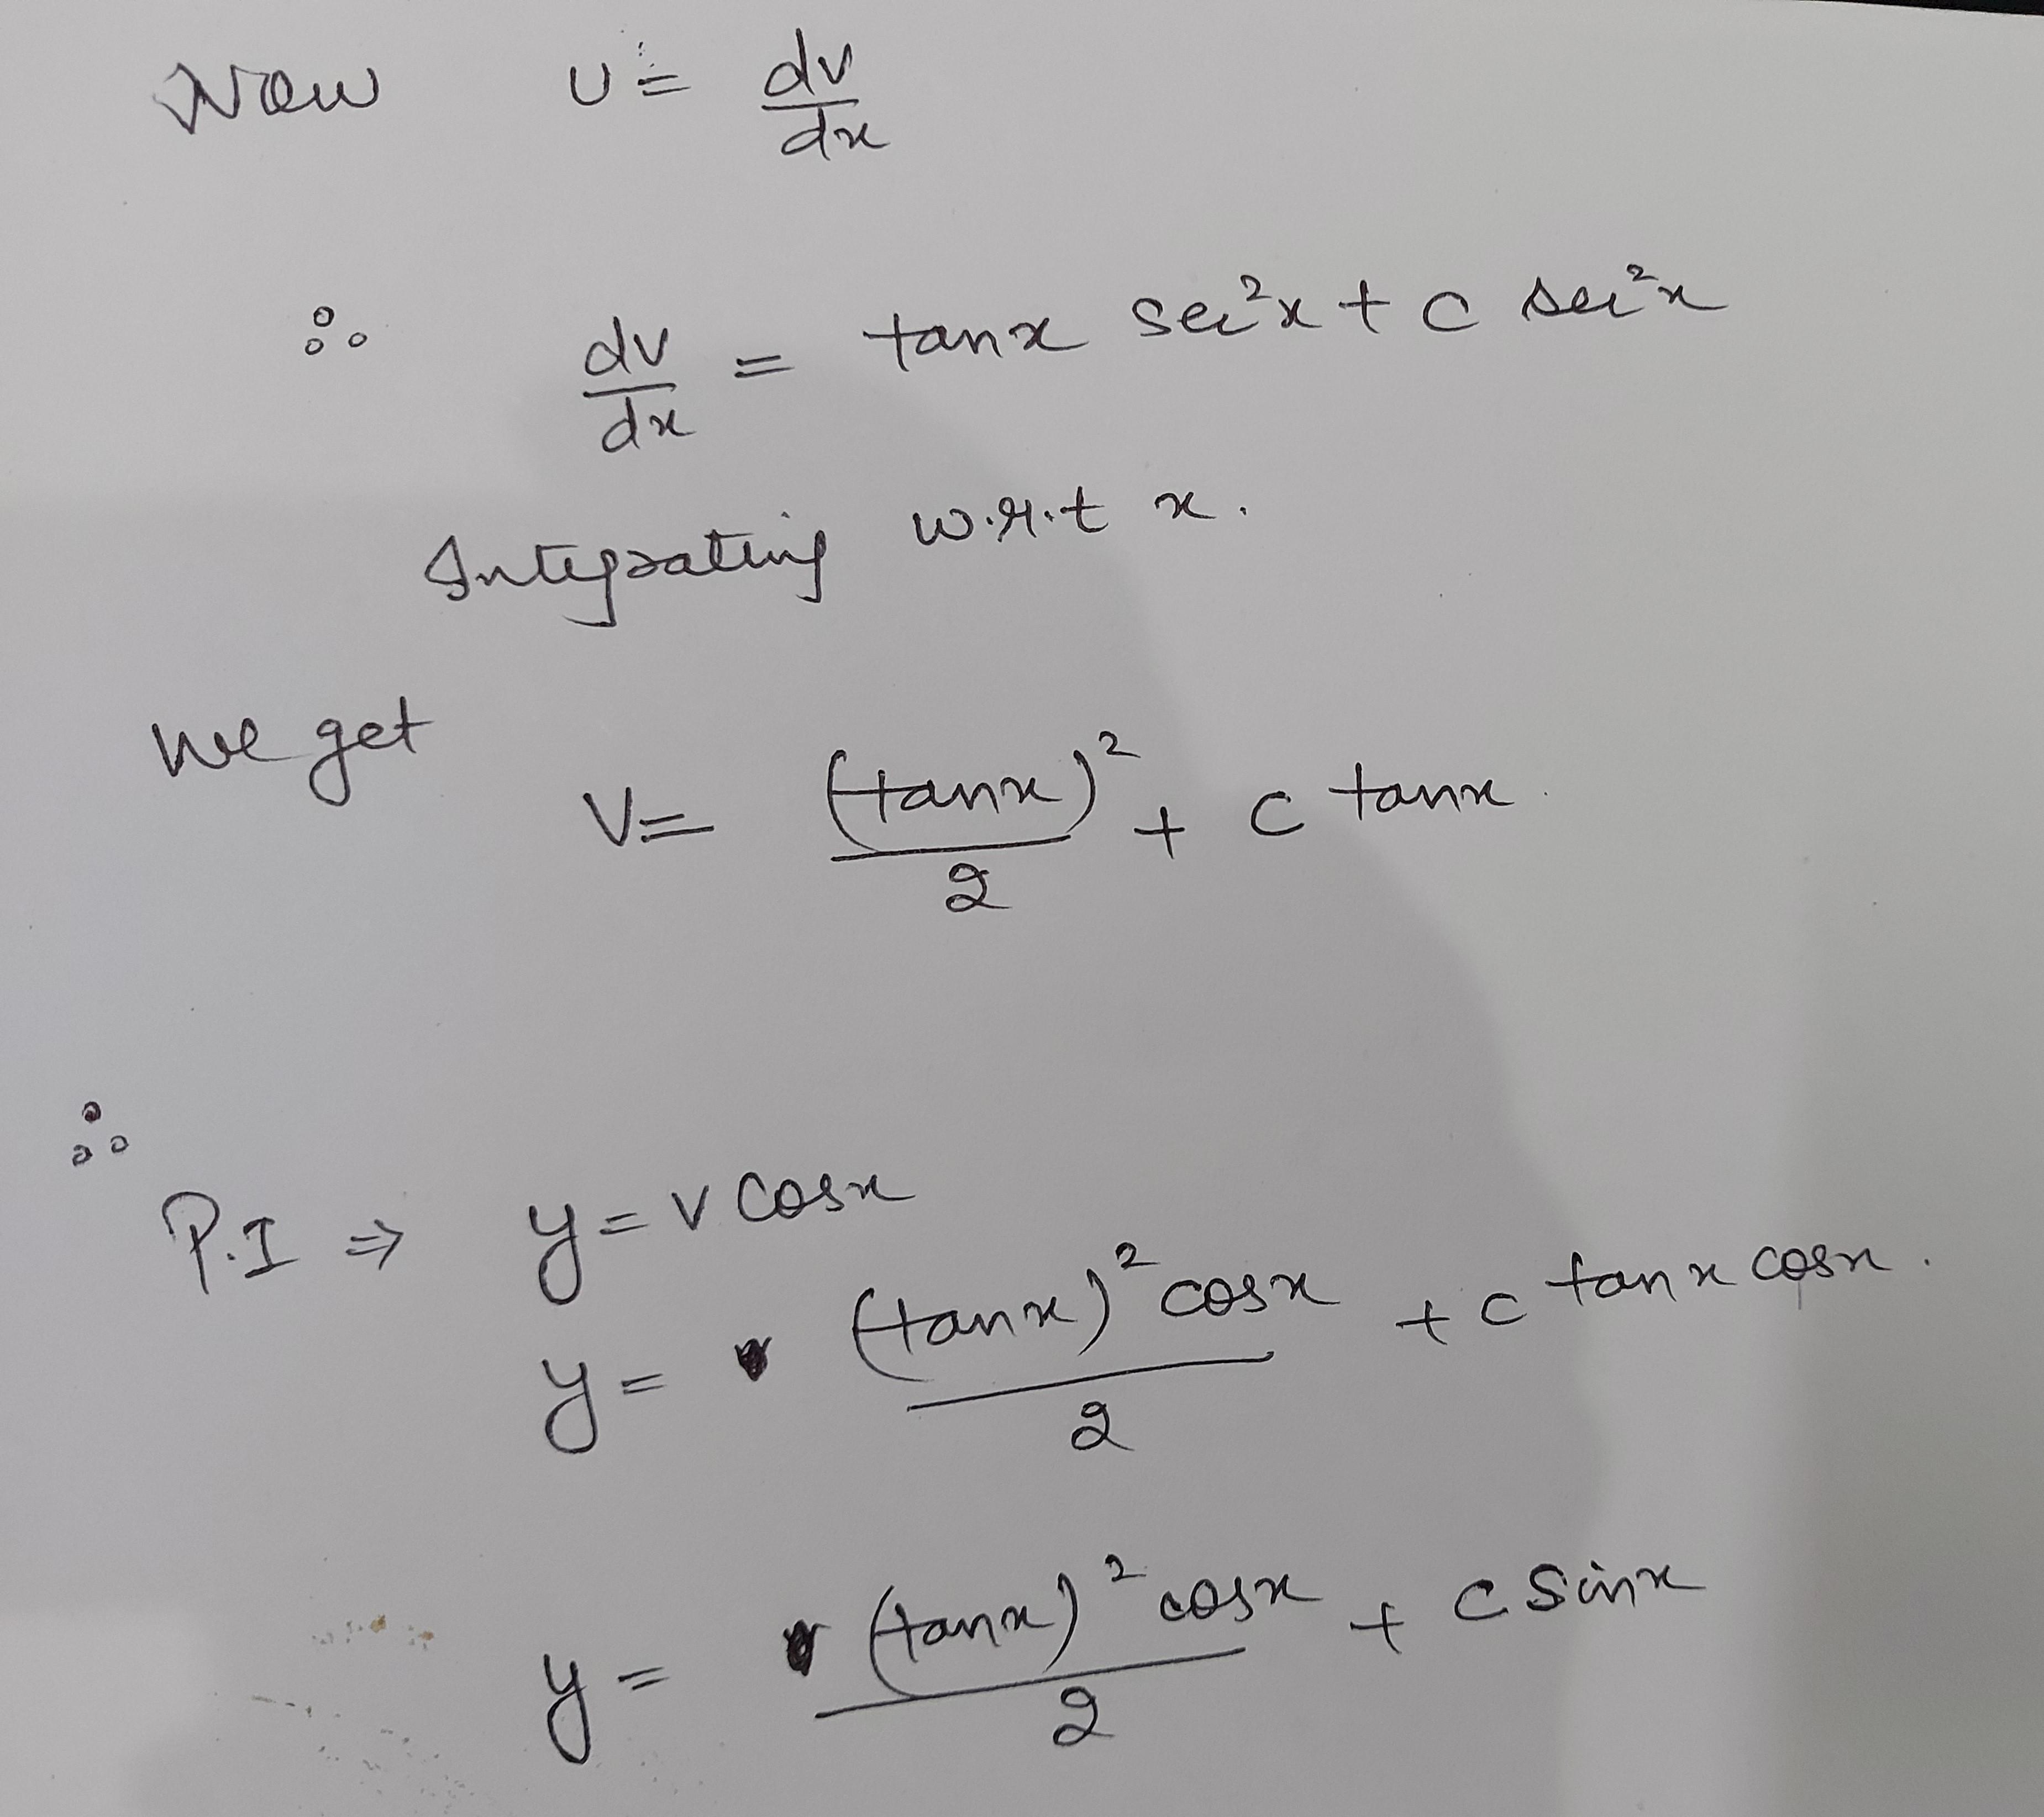 Now u = dv/dx
∴ dv/dx = tanx sec²x + c sec²x
Integrating w.r.t x.
We get V = (tanx)²/2 + c tanx.
∴
P.I ⇒ y = v cosx
y = (tanx)² cosx/2 + c tanx cosx.
y = (tanx)² cosx/2 + c sinx